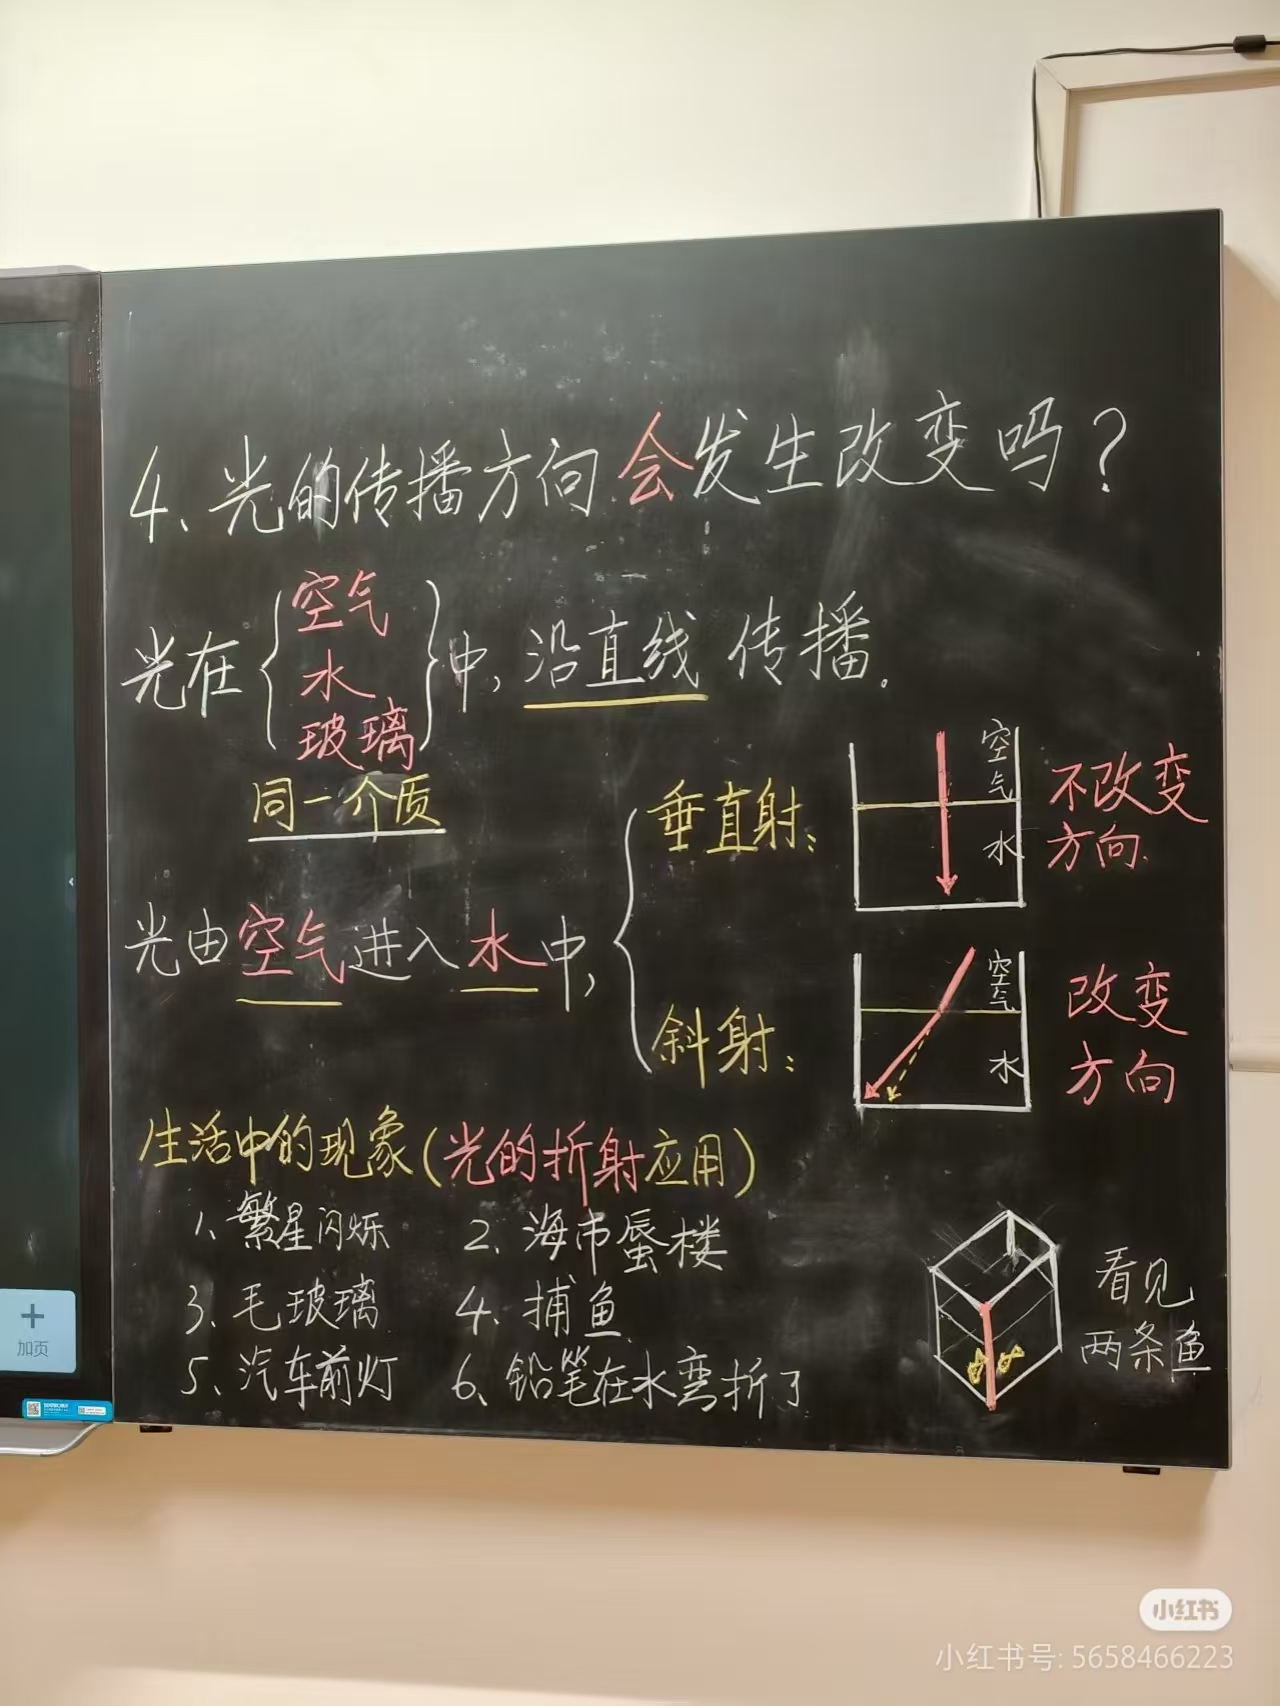 4、光的传播方向会发生改变吗？
光在{空气
水
玻璃}中，沿直线传播.
同一介质
光由空气进入水中，
垂直射：
空气
水
不改变
方向.
斜射：
空气
水
改变
方向
生活中的现象(光的折射应用)
1、繁星闪烁 2、海市蜃楼
3、毛玻璃 4、捕鱼
5、汽车前灯 6、铅笔在水弯折了
看见
两条鱼
加页
小红书
小红书号: 5658466223